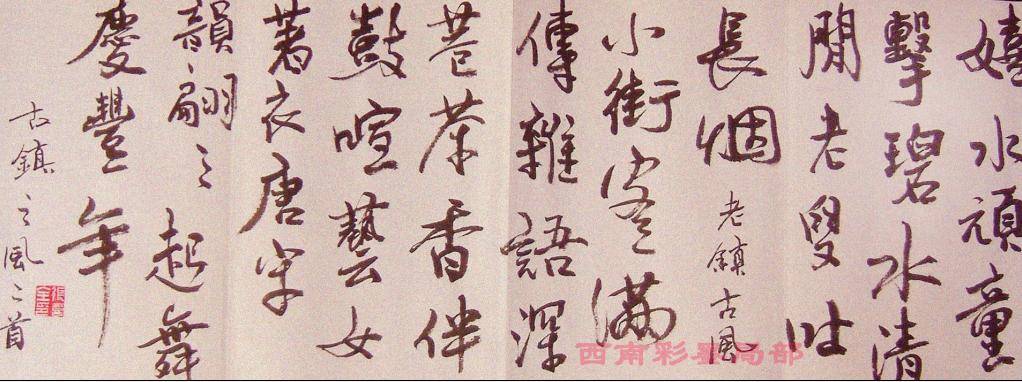 嬉水頑童
擊碧水清
閒老叟吐
長烟
老鎮古風
小街客滿
傳雜語深
巷茶香伴
鼓喧藝女
著衣唐宋
韻翩々起舞
慶豐年
古鎮之風二首
西南彩墨局部